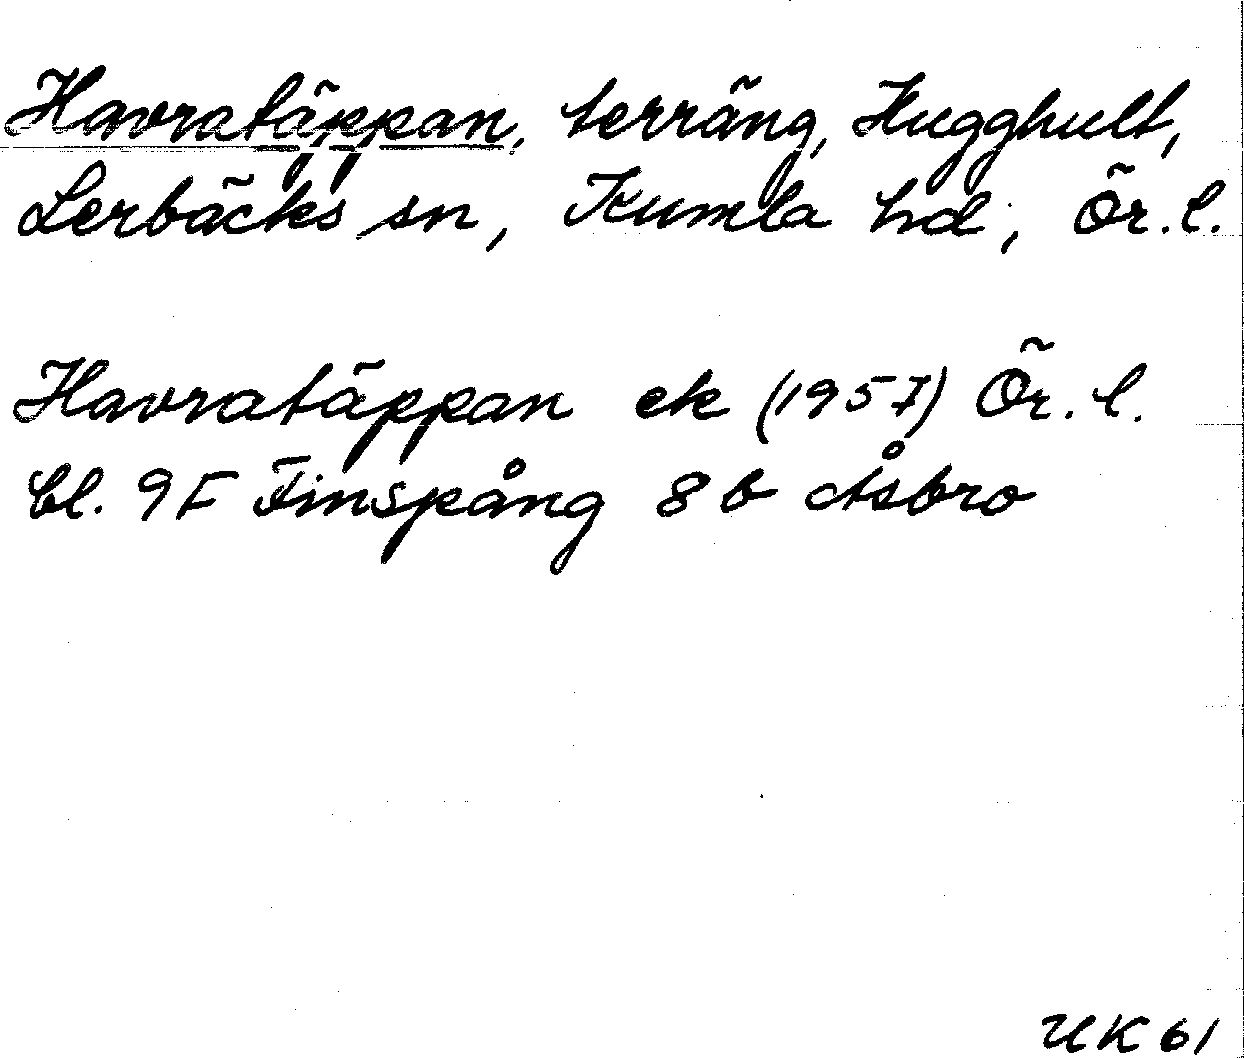 Havratäppan, terräng, Hugghult,
Lerbäcks sn, Kumla hd, Ör. l.
Havratäppan ek (1957) Ör. l.
bl. 9F Finspång 8 b Åsbro
UK 61